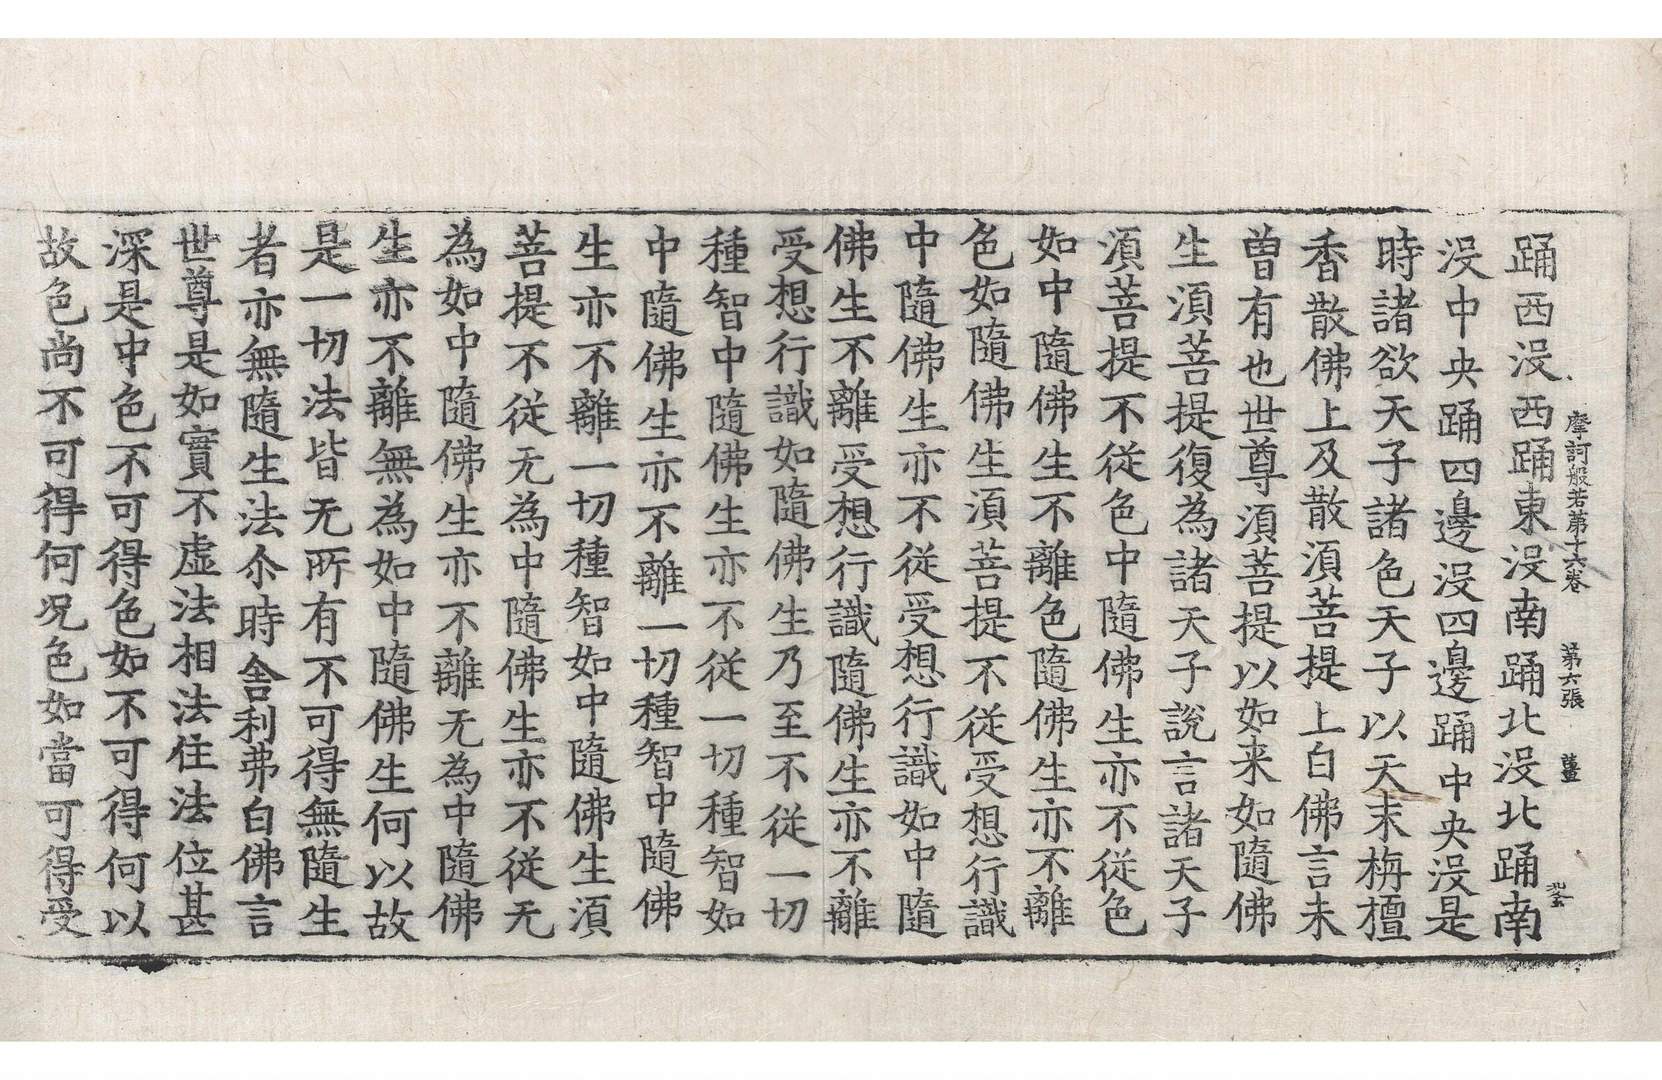 摩訶般若第十六卷 第六張 薑
踊西没西踊東没南踊北没北踊南
没中央踊四邊没四邊踊中央没是
時諸欲天子諸色天子以天末栴檀
香散佛上及散湏菩提上白佛言未
曽有也世尊湏菩提以如来如隨佛
生湏菩提復為諸天子說言諸天子
湏菩提不從色中隨佛生亦不從色
如中隨佛生不離色隨佛生亦不離
色如隨佛生湏菩提不從受想行識
中隨佛生亦不從受想行識如中隨
佛生不離受想行識隨佛生亦不離
受想行識如隨佛生乃至不從一切
種智中隨佛生亦不從一切種智如
中隨佛生亦不離一切種智中隨佛
生亦不離一切種智如中隨佛生湏
菩提不從无為中隨佛生亦不從无
為如中隨佛生亦不離无為中隨佛
生亦不離無為如中隨佛生何以故
是一切法皆无所有不可得無隨生
者亦無隨生法尒時舍利弗白佛言
世尊是如實不虛法相法住法位甚
深是中色不可得色如不可得何以
故色尚不可得何况色如當可得受